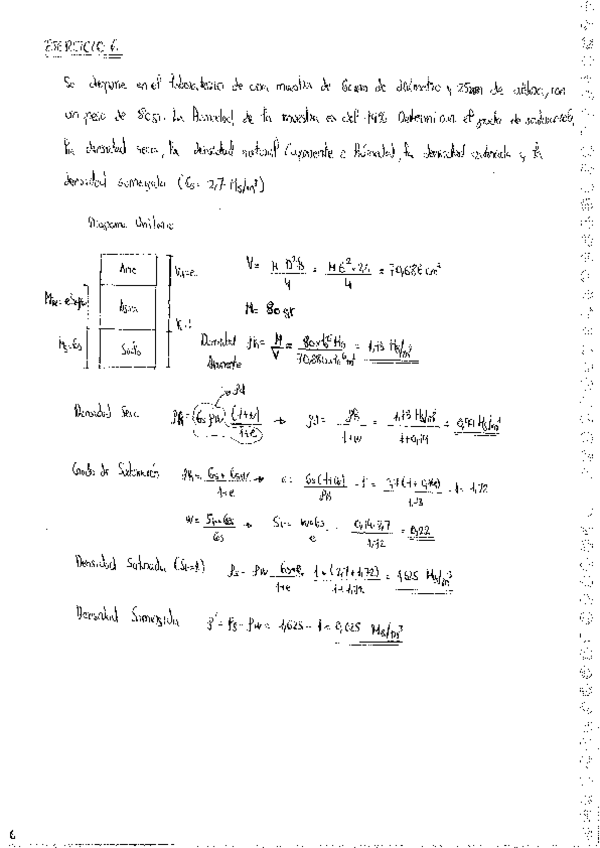 EJERCICIO 6.
Se dispone en el laboratorio de una muestra de 6cm de diámetro y 25mm de altura, con
un peso de 80gr. La humedad de la muestra es del 14% Determinar el grado de saturación,
la densidad seca, la densidad natural (aparente o húmeda), la densidad saturada y la
densidad sumergida (Gs= 2,7 Mg/m³)
Diagrama Unitario
Aire
Agua
Sólido
V= π D² h / 4 = / 4 = 70,686 cm³
M= 80gr
Densidad Aparente = M / V = 1,13 Mg/m³
Densidad Seca = 1,13 Mg/m³ / 1+0,14 = Mg/m³
Grado de Saturación
e = Gs(1+w) / - 1 = 2,7(1+0,14) / 1,13 - 1 = 1,72
Sr = w·Gs / e = 0,14·2,7 / 1,72 = 0,22
Densidad Saturada (Sr=1) = Gs+e / 1+e = 1·(2,7+1,72) / 1+1,72 = 1,625 Mg/m³
Densidad Sumergida ρ' = = 1,625 - 1 = 0,625 Mg/m³
6